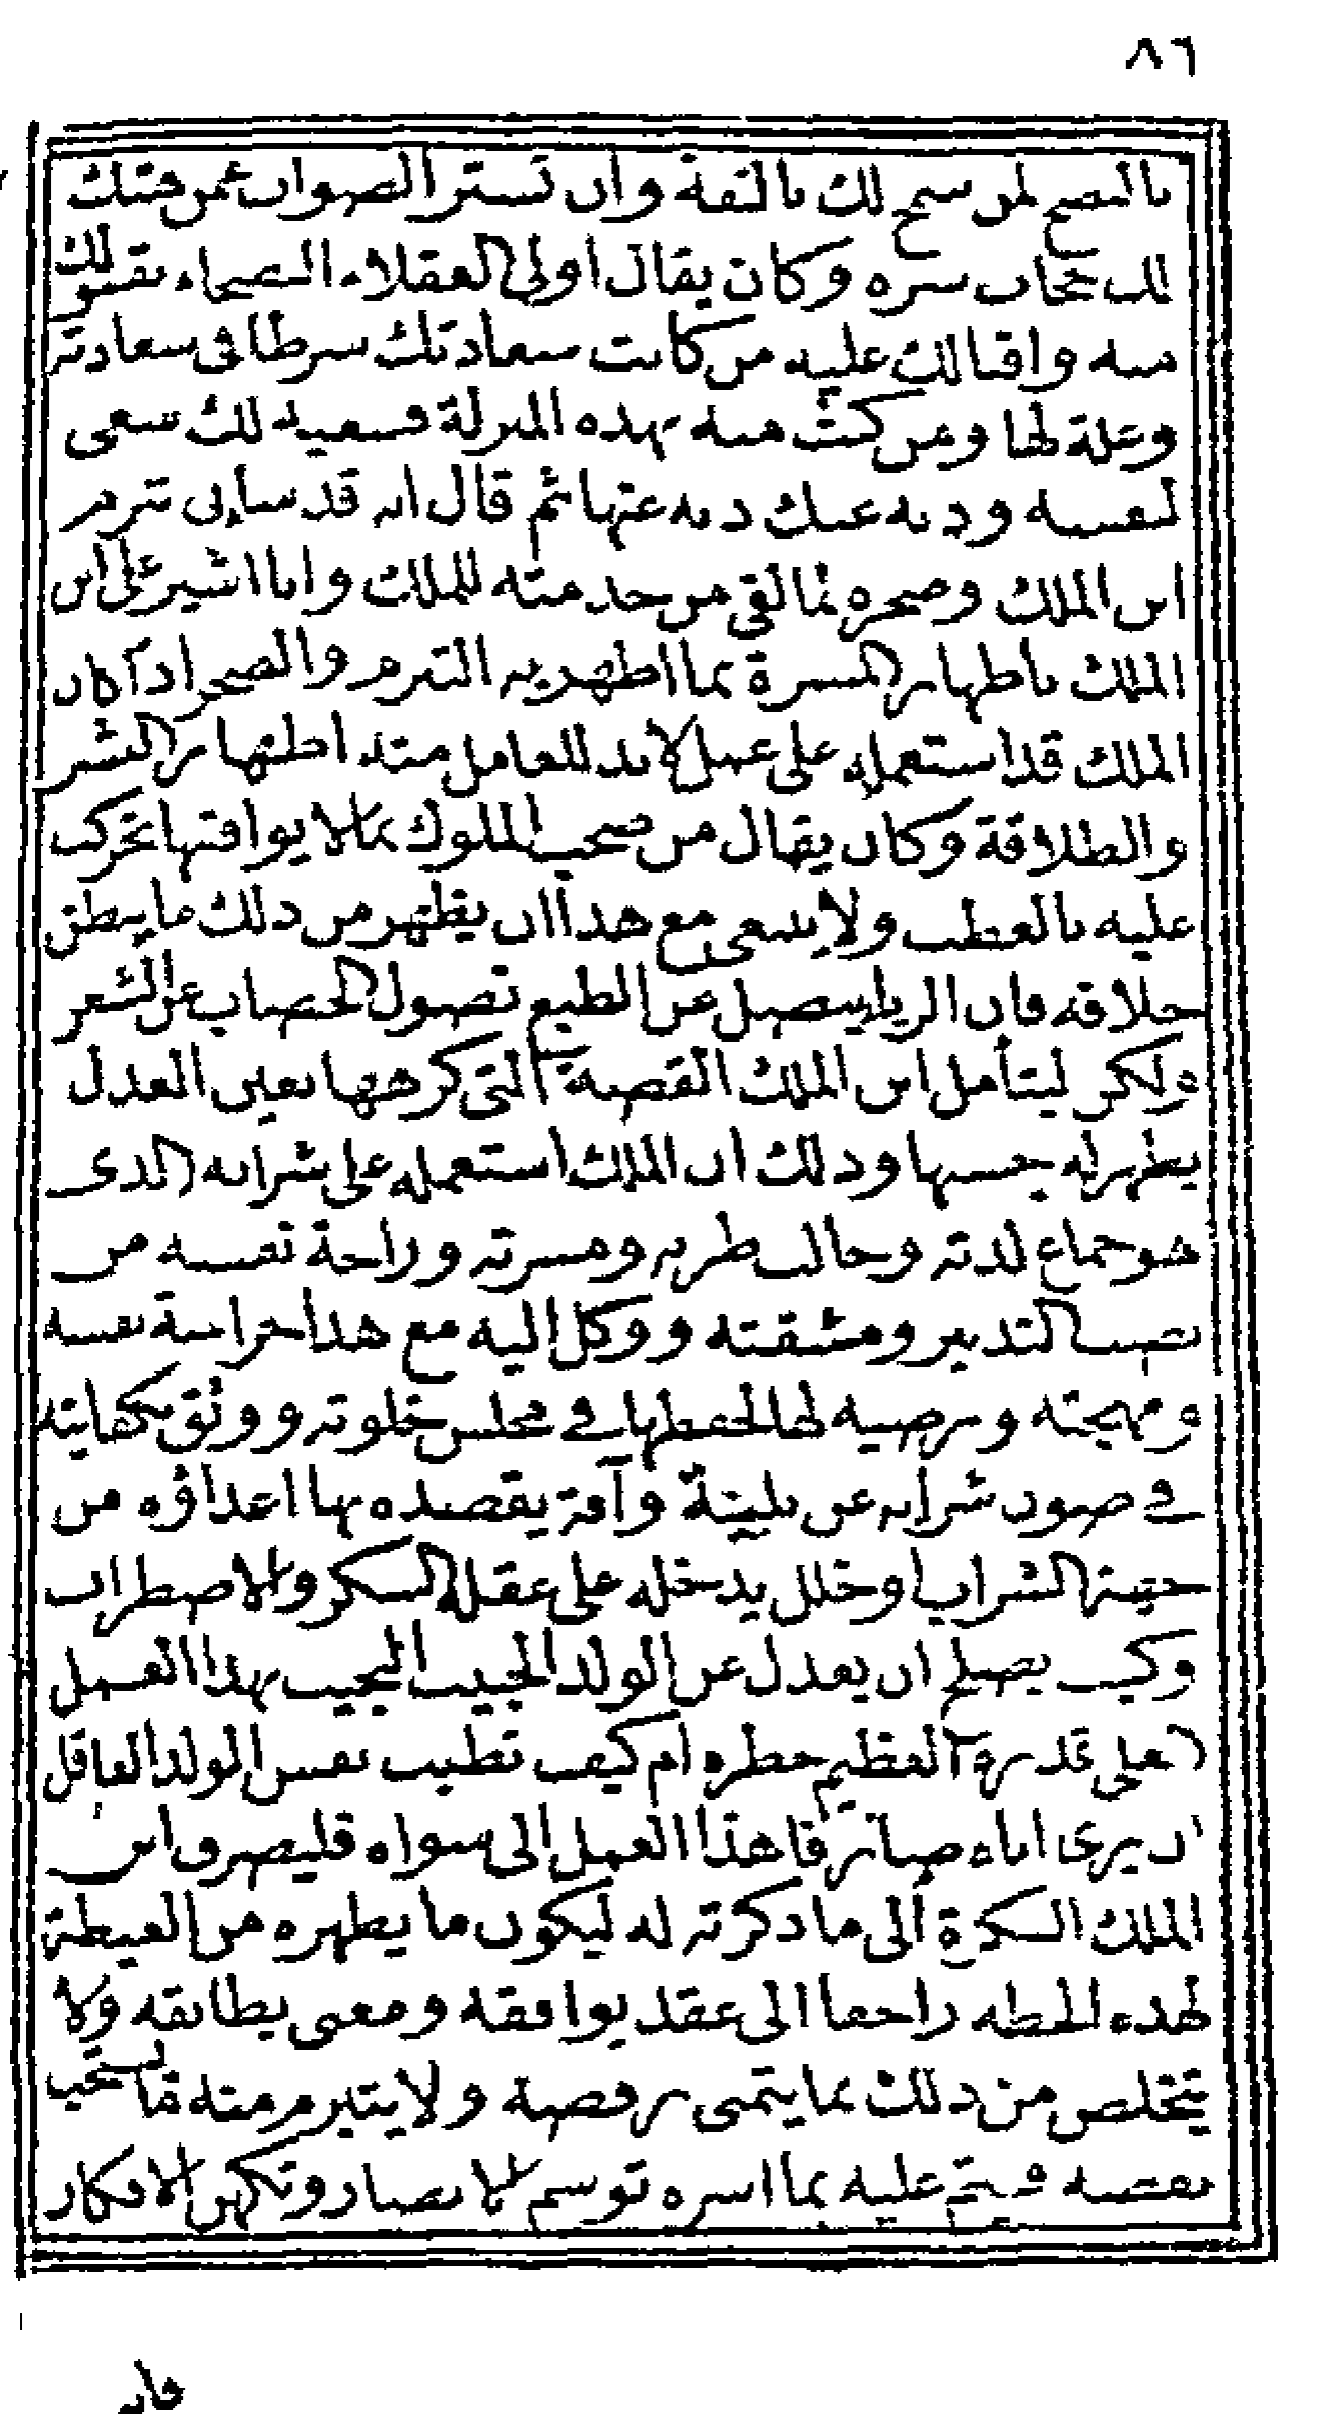 ٨٦
بالنصح لمن سمح لك بالثقة وان تستر الصواب عمن هتك
لك حجاب سره وكان يقال اولى العقلاء النصحاء بقبولك
منه واقبالك عليه من كانت سعادتك شرطا في سعادته
وعلة لها ومن كنت منه بهذه المنزلة فسعيه لك سعى
لنفسه وذبه عنك ذبه عنها ثم قال انه قد ساءنى تبرم
ابن الملك وضجره بما لقي من خدمته للملك وانا اشير على ابن
الملك باظهار المسرة بما اظهر به التبرم والضجر اذ كان
الملك قد استعمله على عمل لا بد للعامل منه اظهار البشر
والطلاقة وكان يقال من صحب الملوك بما لا يوافقها تحركت
عليه بالعطب ولا ينبغى مع هذا ان يظهر من ذلك ما يبطن
خلافه فان الريا ينصل عن الطبع نصول الخضاب عن الشعر
ولكن ليتأمل ابن الملك القضية التى كرهها بعين العدل
يظهر له حسنها وذلك ان الملك استعمله على شرابه الذى
هو جماع لذته وجالب طربه ومسرته وراحة نفسه من
نصب التدبير ومشقته ووكل اليه مع هذا حراسة نفسه
ومهجته ورضيه لها لحفظها في مجلس خلوته ووثق بكفايته
في صون شرابه عن بلية وآفة يقصده بها اعداؤه من
جهة الشراب او خلل يدخله على عقله السكر والاضطراب
وكيف يصلح ان يعدل عن الولد الحبيب النجيب بهذا العمل
العلى قدره العظيم خطره ام كيف تطيب نفس الولد العاقل
ان يرى اباه صارفا هذا العمل الى سواه فليصرف ابن
الملك الفكرة الى ما ذكرته له ليكون ما يظهره من الغبطة
لهذه الخطة راجعا الى عقد يوافقه ومعنى يطابقه ولا
يتخلص من ذلك بما يتمنى رفضه ولا يتبرم منه فاستحب
نقضه فتم عليه بما اسره توسم الابصار وتكهن الافكار
فان